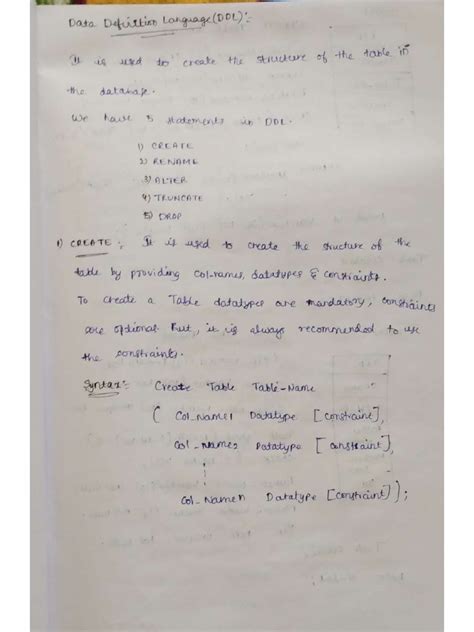 Data Definition Language (DDL):-
It is used to create the structure of the table in
the database.
We have 5 statements in DDL.
1) CREATE
2) RENAME
3) ALTER
4) TRUNCATE
5) DROP
1) CREATE :- It is used to create the structure of the
table by providing Col-names, datatypes & constraints.
To create a Table datatypes are mandatory, constraints
are optional. But, it is always recommended to use
the constraints.
Syntax:- Create Table Table-Name
( Col_Name1 Datatype [constraint],
Col_Name2 Datatype [constraint],
Col_NameN Datatype [constraint]);